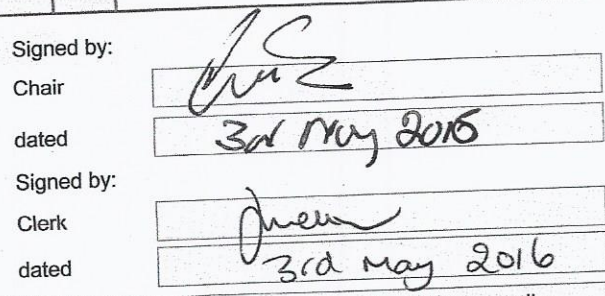 Signed by:
Chair
dated 3rd May 2016
Signed by:
Clerk
dated 3rd May 2016